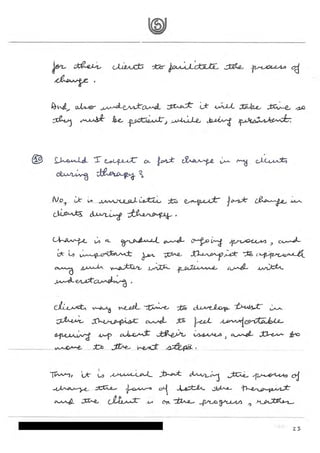 for their clients to facilitate the process of
change.
And also understand that it will take time so
they must be patient, while being persistent.
Should I expect a fast change in my clients
during therapy?
No, it is unrealistic to expect fast change in
clients during therapy.
Change is a gradual and ongoing process, and
it is important for the therapist to approach
any such matter with patience and with
understanding.
Clients may need time to develop trust in
their therapist and to feel comfortable
opening up about their issues, and then to
move to the next steps.
Thus, it is crucial that during the process of
change the focus of both the therapist
and the client is on the progress, rather
25